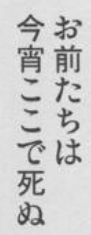 お前たちは
今宵ここで死ぬ